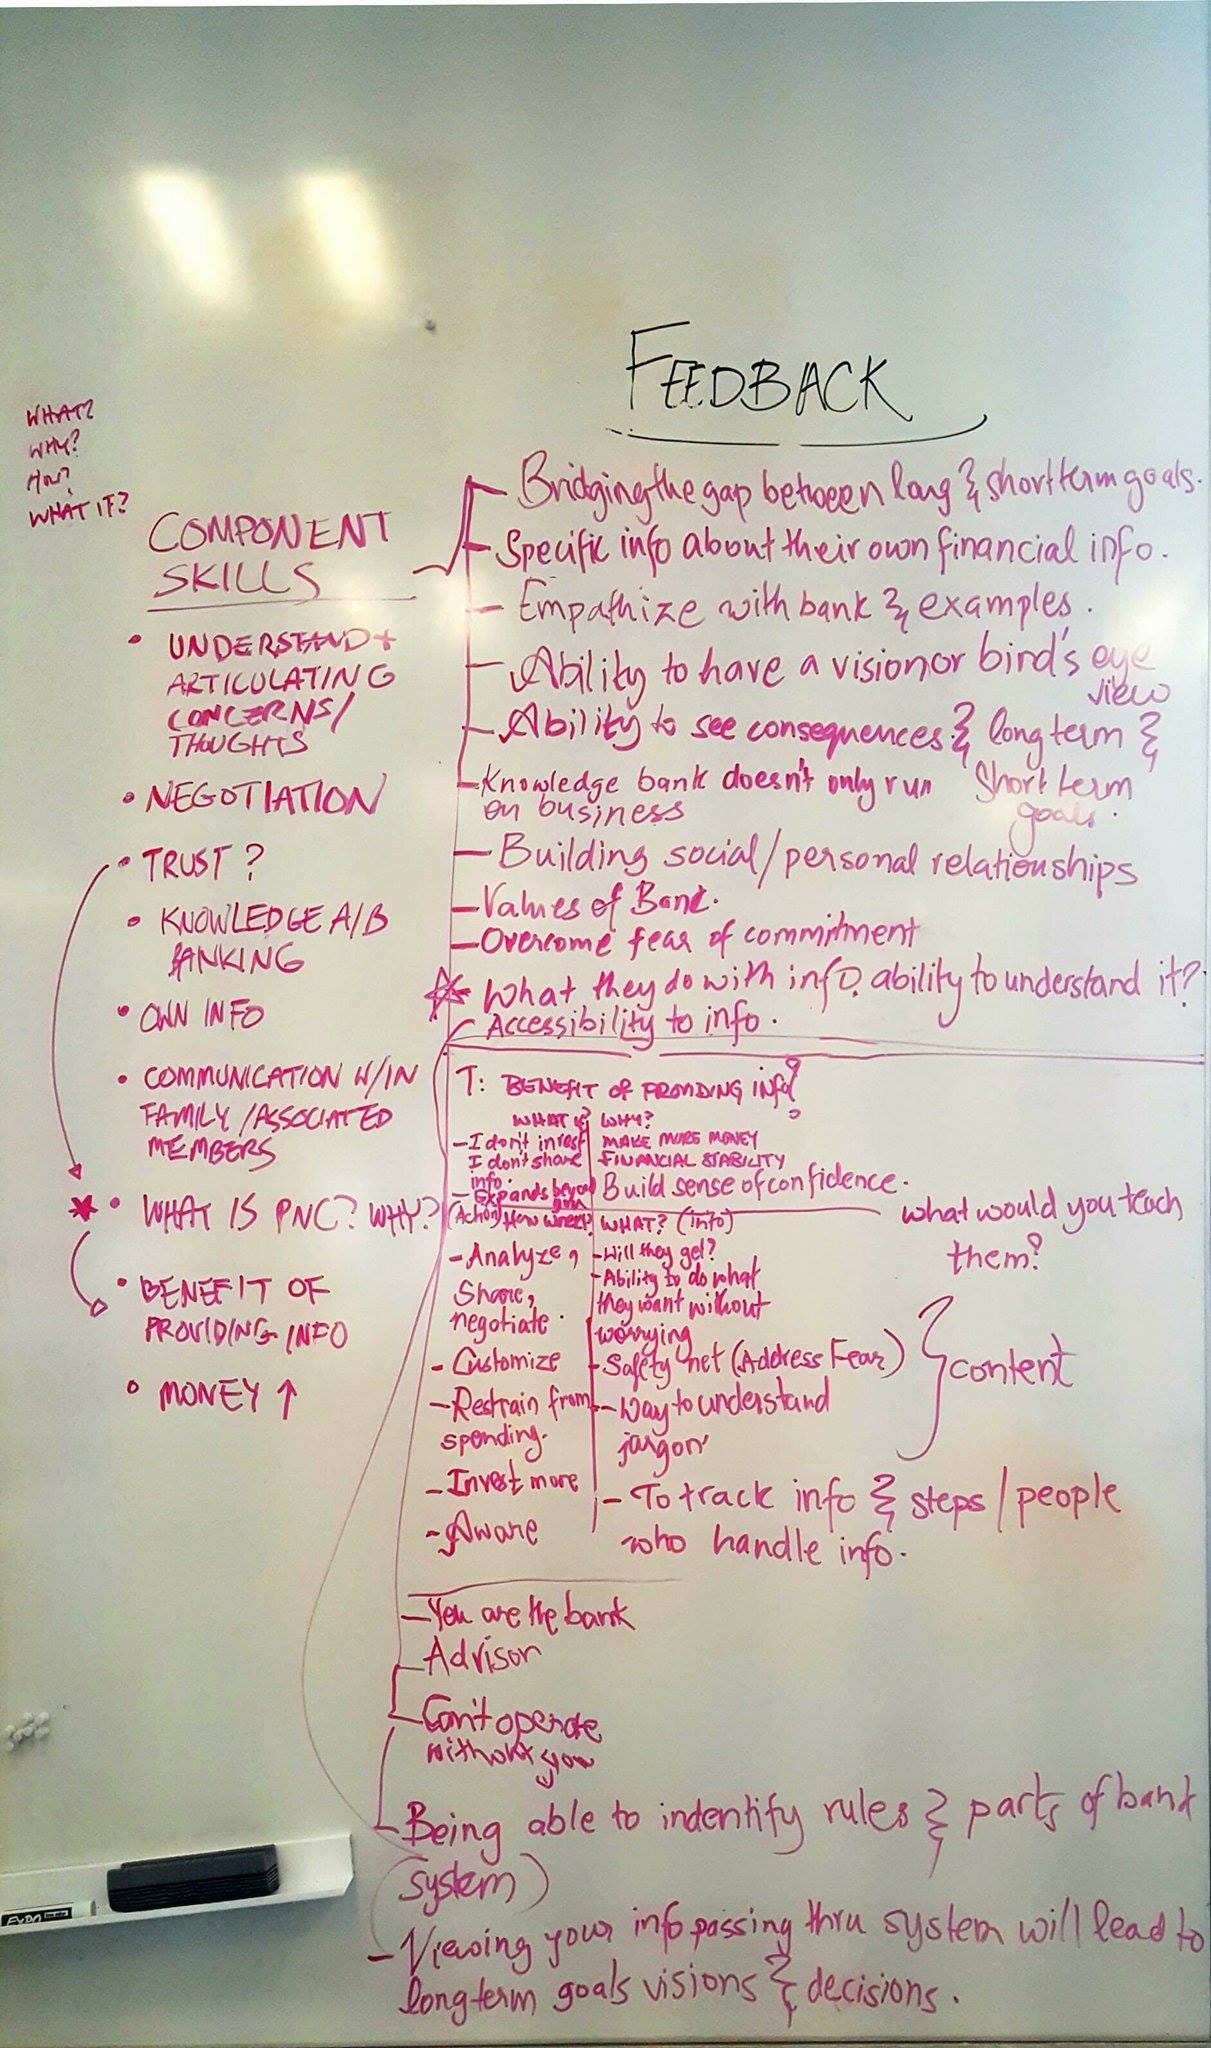 FEEDBACK
WHAT?
WHY?
HOW?
WHAT IF?
COMPONENT
SKILLS
• UNDERSTAND +
ARTICULATING
CONCERNS/
THOUGHTS
• NEGOTIATION
• TRUST?
• KNOWLEDGE A/B
BANKING
• OWN INFO
• COMMUNICATION W/IN
FAMILY/ASSOCIATED
MEMBERS
• WHAT IS PNC? WHY?
• BENEFIT OF
PROVIDING INFO
• MONEY ↑
- Bridging the gap between long & short term goals.
- Specific info about their own financial info.
- Empathize with bank & examples.
- Ability to have a vision or bird's eye
view
- Ability to see consequences & long term &
short term
goals.
- Knowledge bank doesn't only run
on business
- Building social/personal relationships
- Values of Bank.
- Overcome fear of commitment
☆ What they do with info, ability to understand it?
- Accessibility to info.
T: BENEFIT OF PROVIDING info?
WHAT if?
- I don't invest
I don't share
info.
- Expands beyond
WHY?
MAKE MORE MONEY
FINANCIAL STABILITY
Build sense of confidence.
(Action) How
- Analyze,
Share,
negotiate.
- Customize
- Restrain from
spending.
- Invest more
- Aware
WHAT? (Info)
- Will they get?
- Ability to do what
they want without
worrying
- Safety net (Address Fear)
- Way to understand
jargon
- To track info & steps/people
who handle info.
what would you teach
them?
content
- You are the bank
- Advisor
- Can't operate
without you
- Being able to indentify rules & parts of bank
(system)
- Viewing your info passing thru system will lead to
long term goals visions & decisions.
EXPO